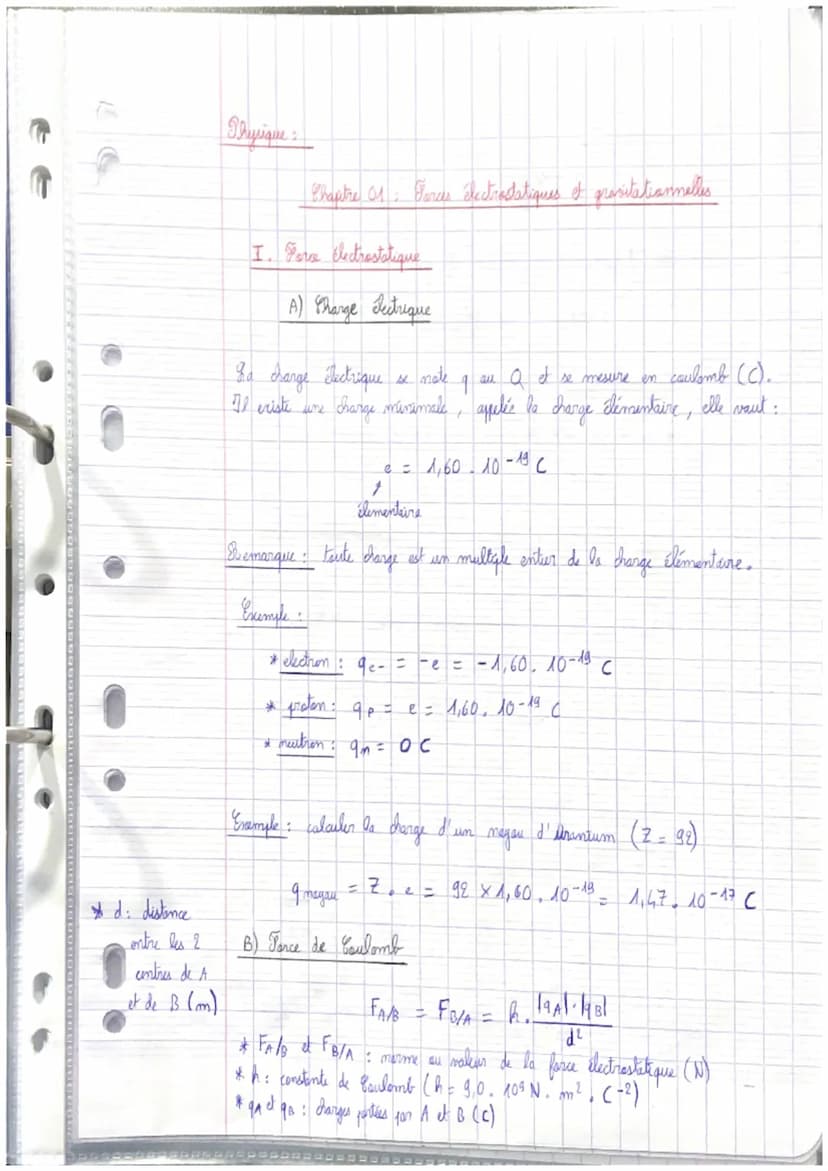 Physique :
Chapitre 01 : Forces électrostatiques et gravitationnelles
I. Force électrostatique
A) Charge électrique
La charge électrique se note q ou Q et se mesure en coulomb (C).
Il existe une charge minimale, appelée la charge élémentaire, elle vaut :
e = 1,60 . 10⁻¹⁹ C
élementaire
Remarque : toute charge est un multiple entier de la charge élémentaire.
Exemple :
* electron : qe- = -e = -1,60 . 10⁻¹⁹ C
* proton : qp = e = 1,60 . 10⁻¹⁹ C
* neutron : qn = 0 C
Exemple : calculer la charge d'un noyau d'Uranium (Z = 92)
q noyau = Z . e = 92 × 1,60 . 10⁻¹⁹ = 1,47 . 10⁻¹⁷ C
B) Force de Coulomb
* d : distance
entre les 2
centres de A
et de B (m)
F A/B = F B/A = k . |qA| . |qB| / d²
* F A/B et F B/A : norme ou valeur de la force électrostatique (N)
* k : constante de Coulomb (k = 9,0 . 10⁹ N . m² . C⁻²)
* qA et qB : charges portées par A et B (C)